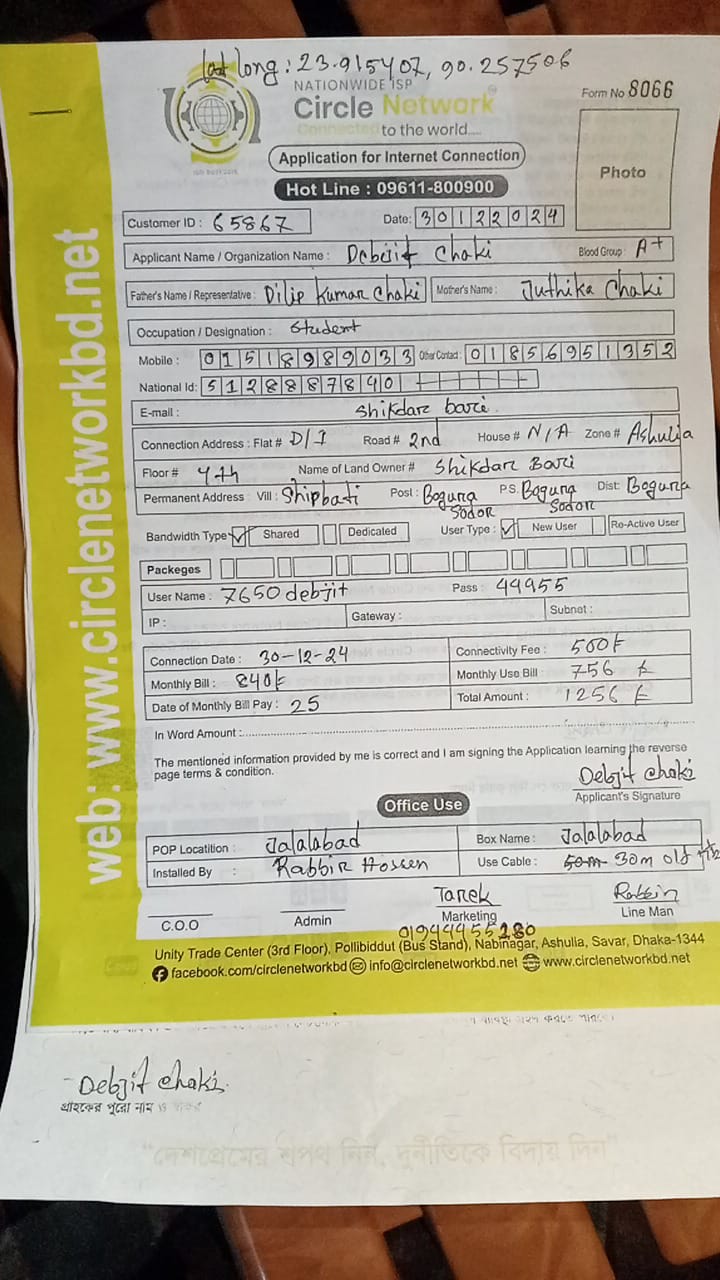 Lat long : 23.915407, 90.257506
NATIONWIDE ISP
Circle Network
Connected to the world....
Form No 8066
Application for Internet Connection
Photo
Hot Line : 09611-800900
Customer ID : 65867 Date: 30122024
Applicant Name / Organization Name : Debjit Chaki Blood Group : A+
Father's Name / Representative : Dilip Kumar Chaki Mother's Name : Juthika Chaki
Occupation / Designation : Student
Mobile : 01518989033 Other Contact : 01856951352
National Id: 5128887840
E-mail : Shikdar bari
Connection Address : Flat # D/1 Road # 2nd House # N/A Zone # Ashulia
Floor # 4th Name of Land Owner # Shikdar Bari
Permanent Address : Vill : Shipbati Post : Bogura Sodor PS. Bogura Sodor Dist: Bogura
Bandwidth Type ✓ Shared Dedicated User Type : ✓ New User Re-Active User
Packeges
User Name : 7650debjit Pass : 44955
IP : Gateway : Subnet :
Connection Date : 30-12-24 Connectivity Fee : 500/-
Monthly Bill : 840/- Monthly Use Bill : 756 /-
Date of Monthly Bill Pay : 25 Total Amount : 1256 /-
In Word Amount :
The mentioned information provided by me is correct and I am signing the Application learning the reverse
page terms & condition.
Debjit Chaki
Applicant's Signature
Office Use
POP Locatition : Jalalabad Box Name : Jalalabad
Installed By : Rabbir Hossen Use Cable : 50m 30m old
Tarek Rabbin
C.O.O Admin Marketing Line Man
01944955280
Unity Trade Center (3rd Floor), Pollibiddut (Bus Stand), Nabinagar, Ashulia, Savar, Dhaka-1344
facebook.com/circlenetworkbd info@circlenetworkbd.net www.circlenetworkbd.net
web: www.circlenetworkbd.net
Debjit Chaki
গ্রাহকের পুরো নাম ও
"দেশপ্রেমের শপথ নিন, দুর্নীতিকে বিদায় দিন"